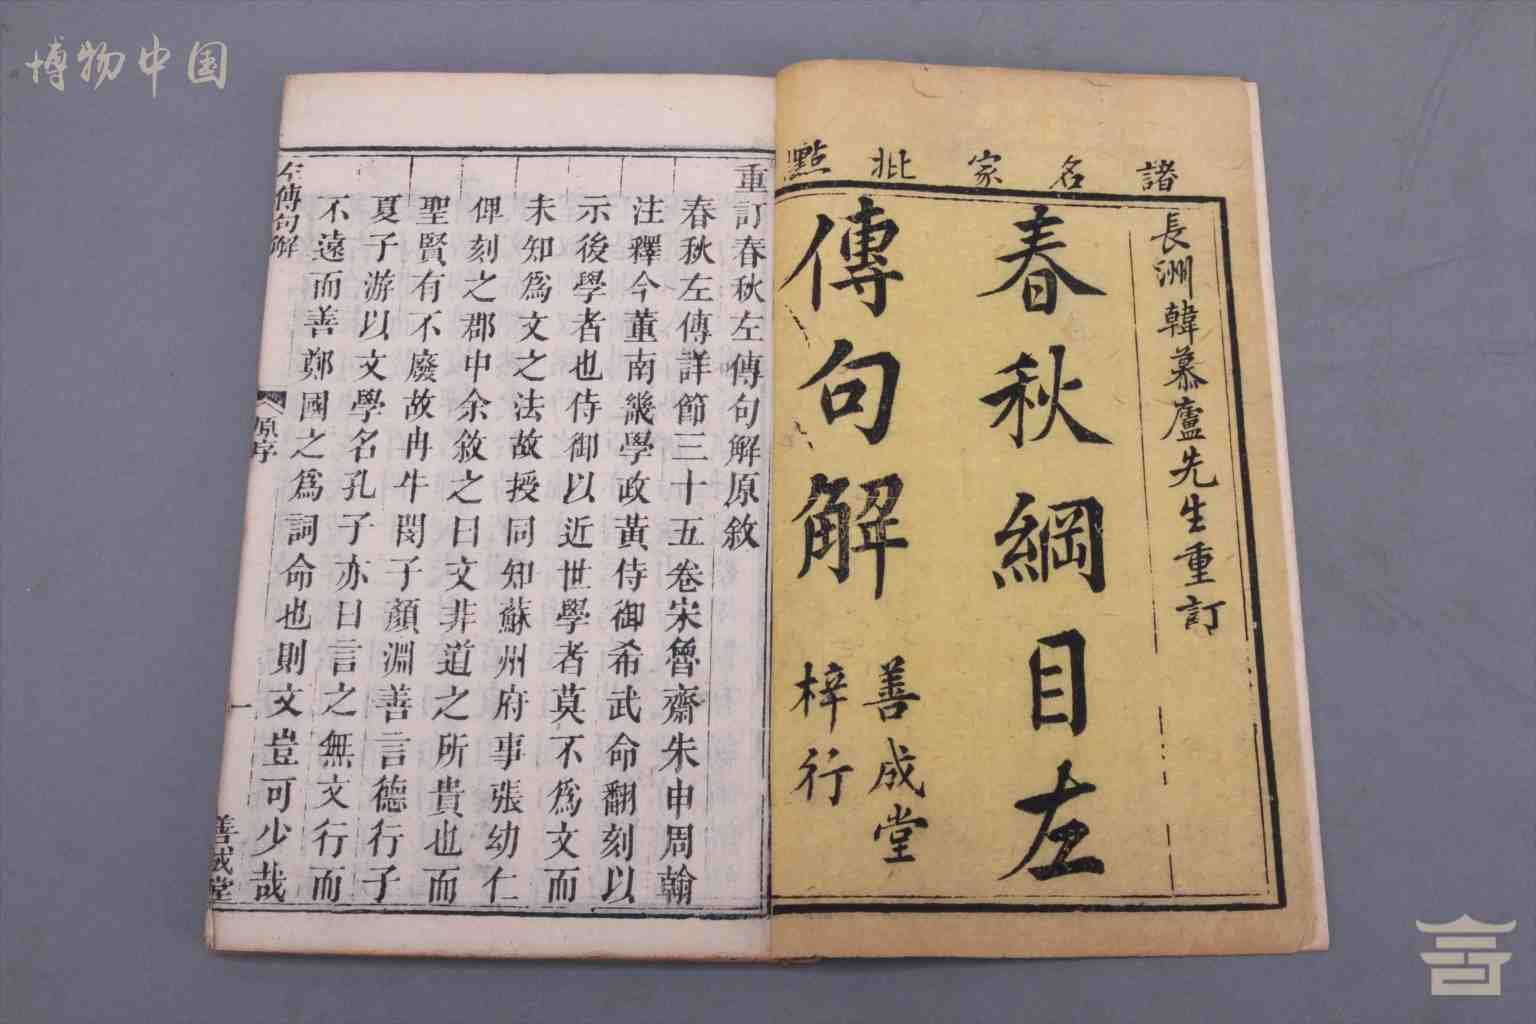 博物中国
諸名家批點
長洲韓慕廬先生重訂
春秋綱目左
傳句解
善成堂
梓行
重訂春秋左傳句解原敘
春秋左傳詳節三十五卷宋魯齋朱申周翰
注釋今董南畿學政黃侍御希武命翻刻以
示後學者也侍御以近世學者莫不為文而
未知為文之法故授同知蘇州府事張幼仁
俾刻之郡中余敘之曰文非道之所貴也而
聖賢有不廢故冉牛閔子顏淵善言德行子
夏子游以文學名孔子亦曰言之無文行而
不遠而善鄭國之為詞命也則文豈可少哉
左傳句解
原序
一
善成堂